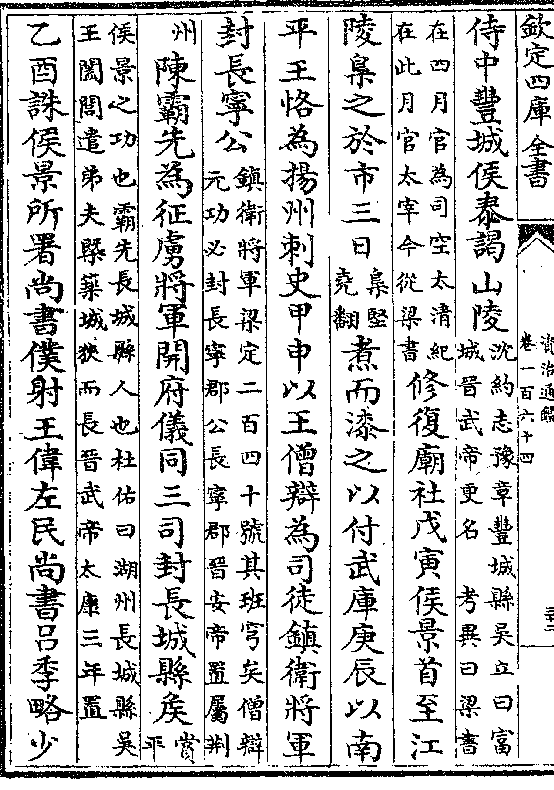 欽定四庫全書
資治通鑑
卷一百六十四
侍中豐城侯泰謁山陵
沈約志豫章豐城縣吳立曰富
城晉武帝更名　考異曰梁書
在四月官為司空太清紀
在此月官太宰今從梁書
修復廟社戊寅侯景首至江
陵梟之於市三日
梟堅
堯翻
煮而漆之以付武庫庚辰以南
平王恪為揚州刺史甲申以王僧辯為司徒鎮衛將軍
封長寧公
鎮衛將軍梁定二百四十號其班穹矣僧辯
元功必封長寧郡公長寧郡晉安帝置屬荆
州
陳霸先為征虜將軍開府儀同三司封長城縣矦
賞平
侯景之功也霸先長城縣人也杜佑曰湖州長城縣吳
王闔閭遣弟夫槩築城狹而長晉武帝太康三年置
乙酉誅侯景所署尚書僕射王偉左民尚書呂季略少